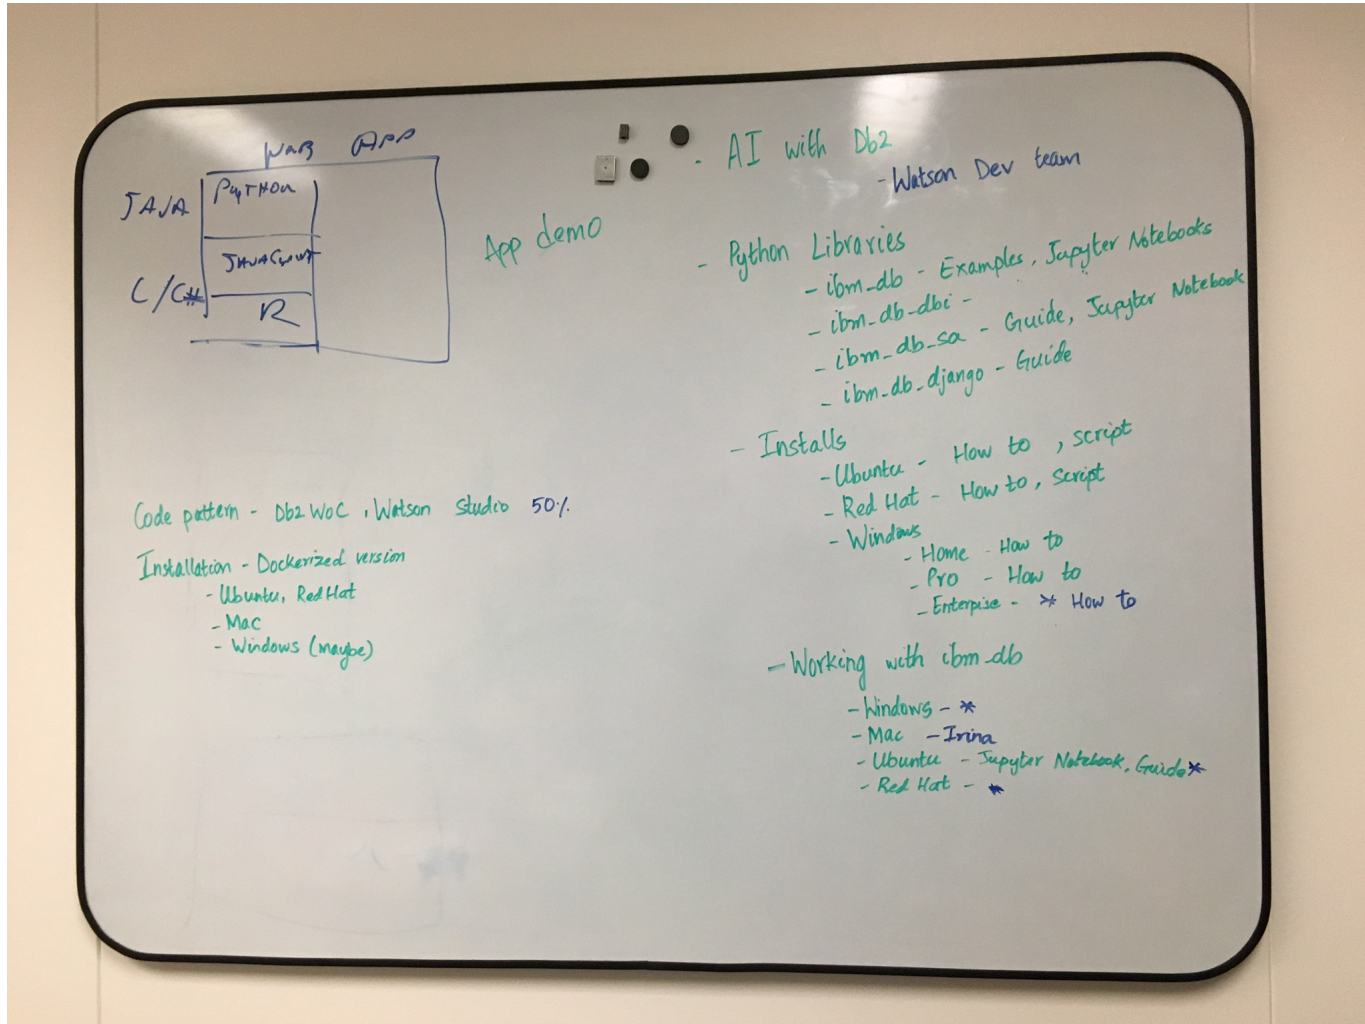 WEB APP
JAVA
PYTHON
JAVASCRIPT
C/C#
R
App demo
Code pattern - Db2 WoC, Watson Studio 50%
Installation - Dockerized version
- Ubuntu, RedHat
- Mac
- Windows (maybe)
- AI with Db2
- Watson Dev team
- Python Libraries
- ibm_db - Examples, Jupyter Notebooks
- ibm_db_dbi -
- ibm_db_sa - Guide, Jupyter Notebook
- ibm_db_django - Guide
- Installs
- Ubuntu - How to, script
- Red Hat - How to, Script
- Windows
- Home - How to
- Pro - How to
- Enterpise - * How to
- Working with ibm_db
- Windows - *
- Mac - Irina
- Ubuntu - Jupyter Notebook, Guide*
- Red Hat - *